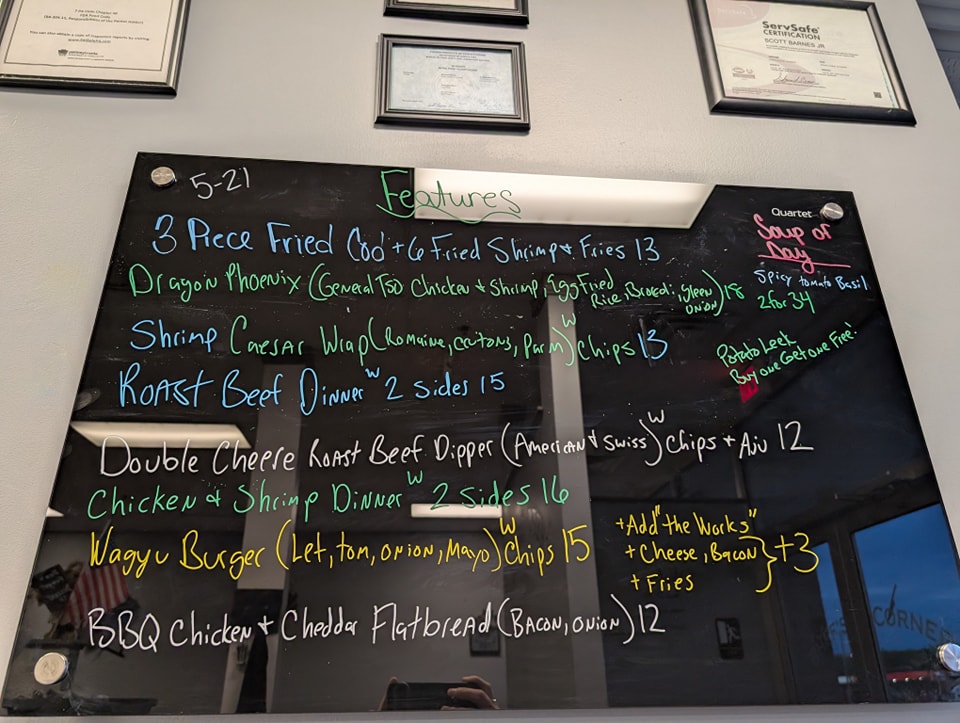 ServSafe
CERTIFICATION
SCOTT BARNES JR
5-21
Features
Quartet
3 Piece Fried Cod + 6 Fried Shrimp + Fries 13
Dragon Phoenix (General Tso Chicken + Shrimp, Egg Fried Rice, Broccoli, Green Onion) 18
Shrimp Caesar Wrap (Romaine, croutons, Parm) W Chips 13
Roast Beef Dinner W 2 Sides 15
Double Cheese Roast Beef Dipper (American + Swiss) W Chips + Aju 12
Chicken & Shrimp Dinner W 2 Sides 16
Wagyu Burger (Let, tom, onion, Mayo) W Chips 15
+Add "the Works"
+ Cheese, Bacon
+ Fries
+3
BBQ Chicken + Cheddar Flatbread (Bacon, onion) 12
Soup of
Day
Spicy tomato Basil
2 for 34
Potato Leek
Buy one Get one Free!
CORNER